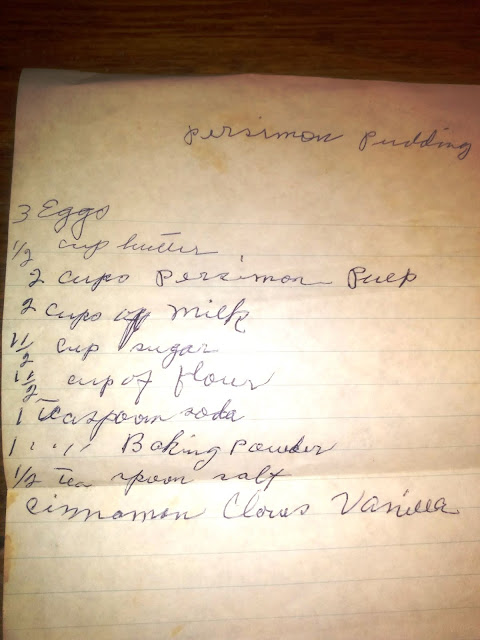 Persimon Pudding
3 Eggs
1/2 cup butter
2 cups Persimon Pulp
2 cups of Milk
1 1/2 cup sugar
1 1/2 cup of flour
1 teaspoon soda
1 " " Baking Powder
1/2 tea spoon salt
Cinnamon Cloves Vanilla